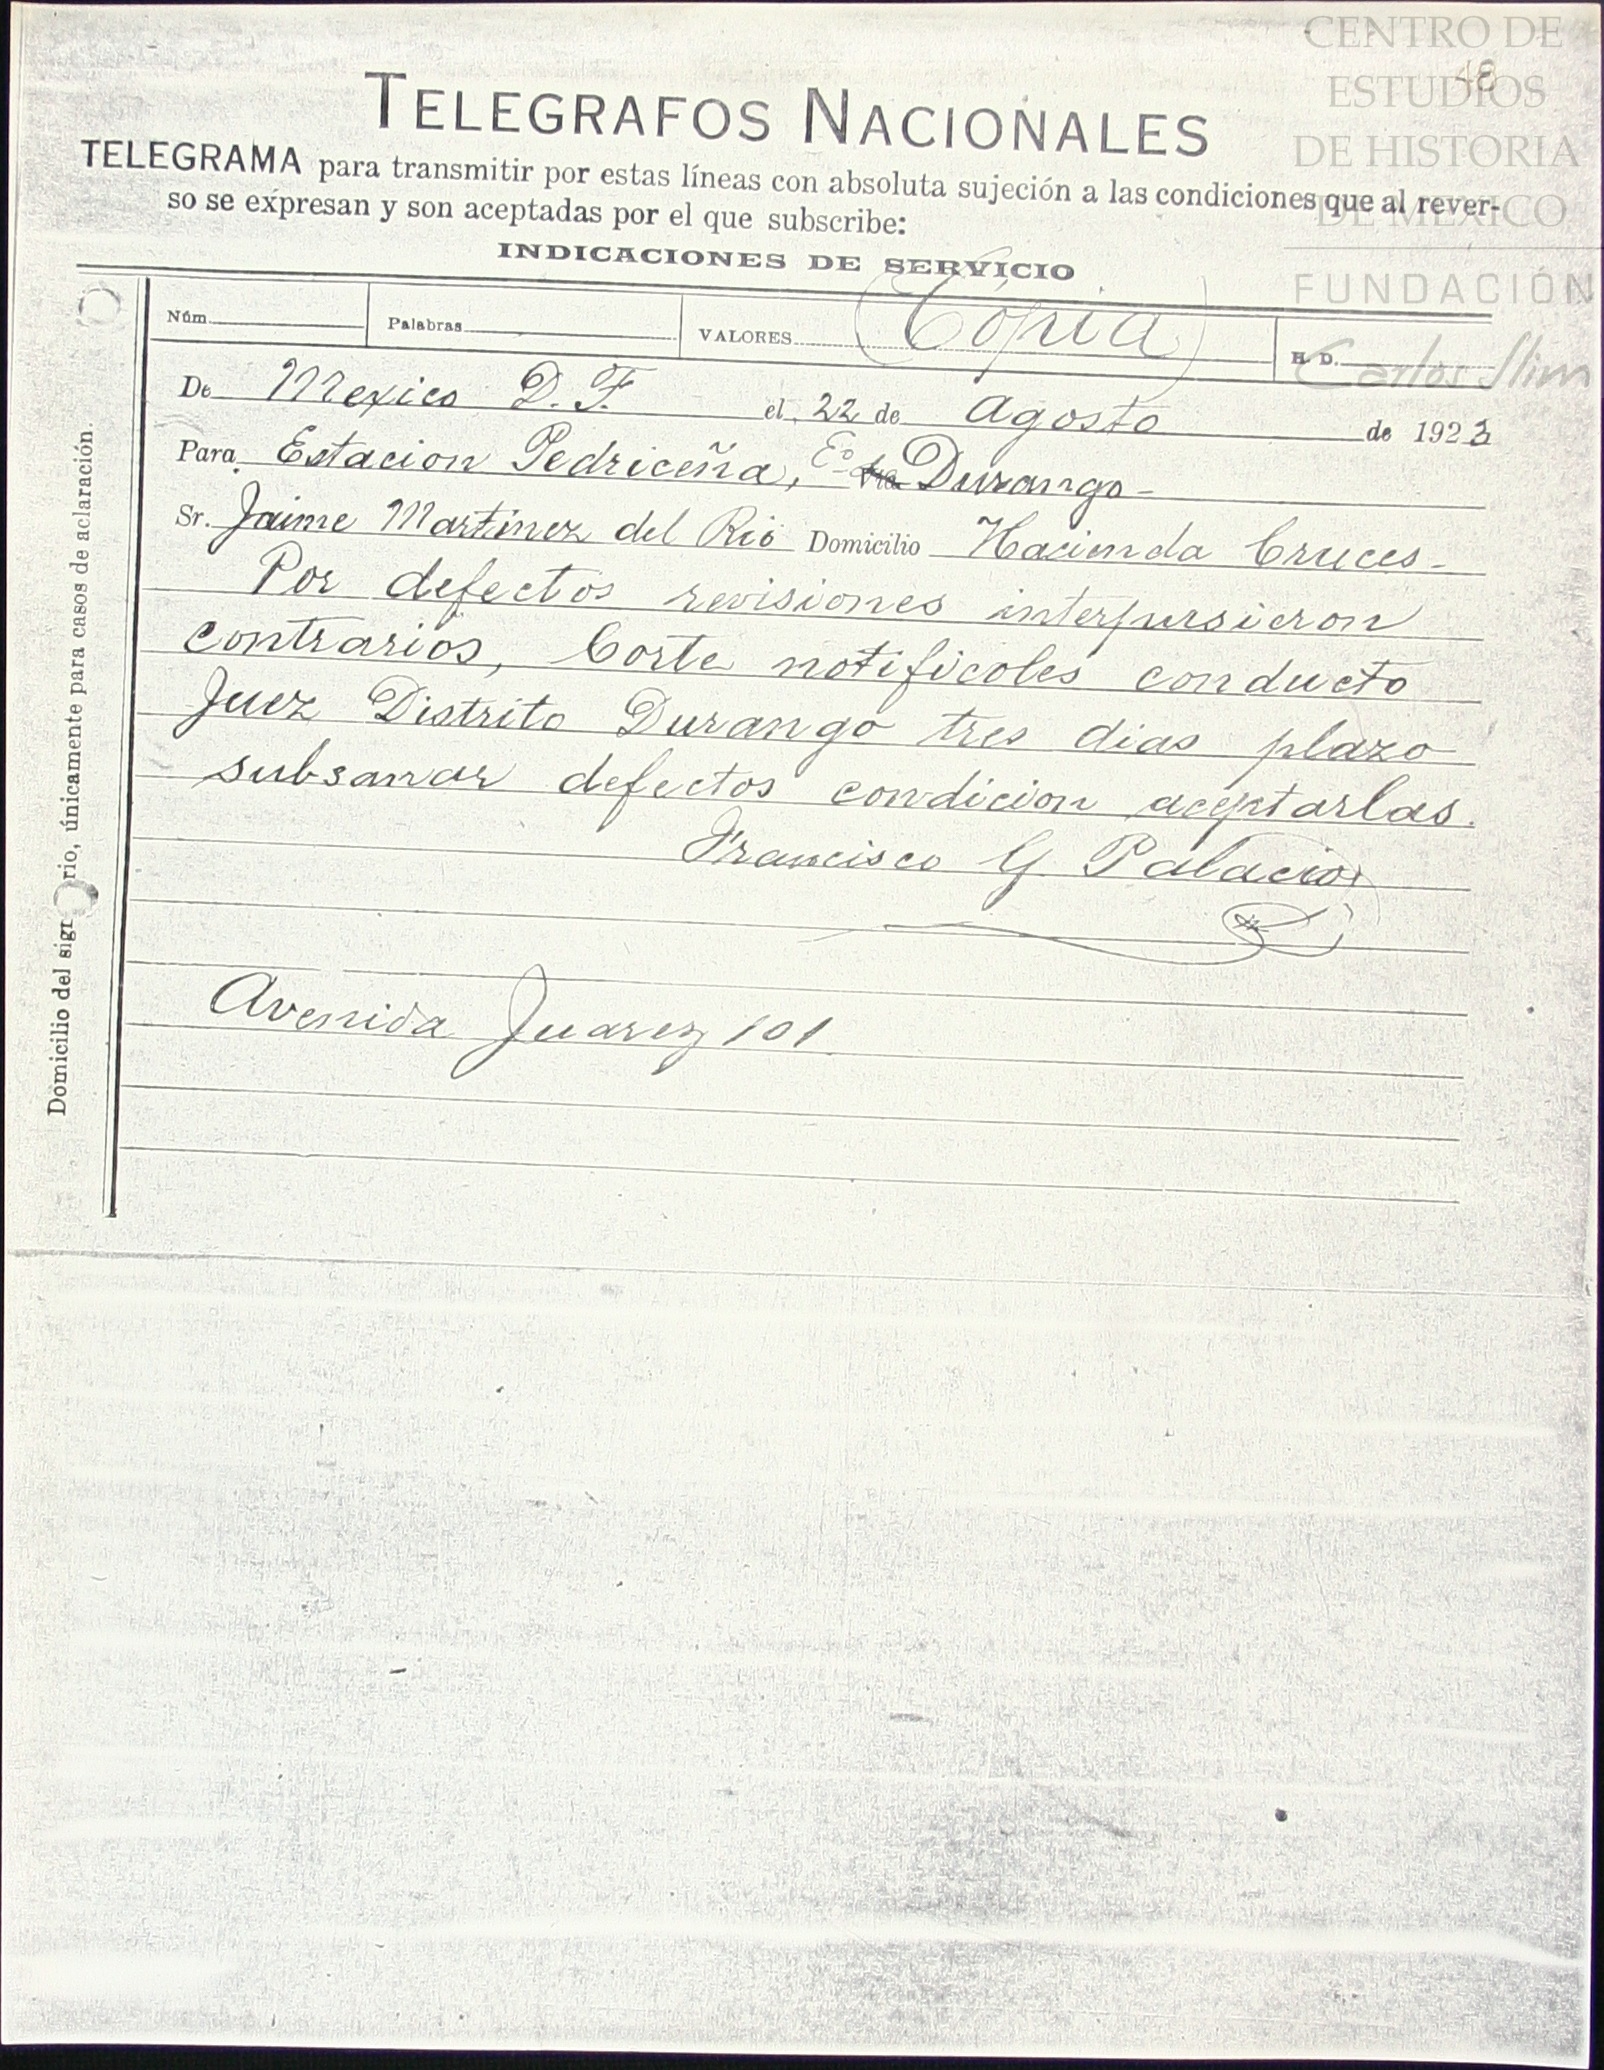 CENTRO DE
ESTUDIOS
DE HISTORIA
DE MÉXICO
FUNDACIÓN
Carlos Slim
48
TELEGRAFOS NACIONALES
TELEGRAMA para transmitir por estas líneas con absoluta sujeción a las condiciones que al rever-
so se expresan y son aceptadas por el que subscribe:
INDICACIONES DE SERVICIO
Núm. Palabras VALORES (Copia) H. D.
De Mexico D. F. el 22 de Agosto de 1923
Para Estacion Pedriceña, Eo. Durango-
Sr. Jaime Martinez del Rio Domicilio Hacienda Cruces-
Por defectos revisiones interpusieron
contrarios, Corte notificoles conducto
Juez Distrito Durango tres dias plazo
subsanar defectos condicion aceptarlas.
Francisco G. Palacio
Avenida Juarez 101
Domicilio del sig rio, únicamente para casos de aclaración.